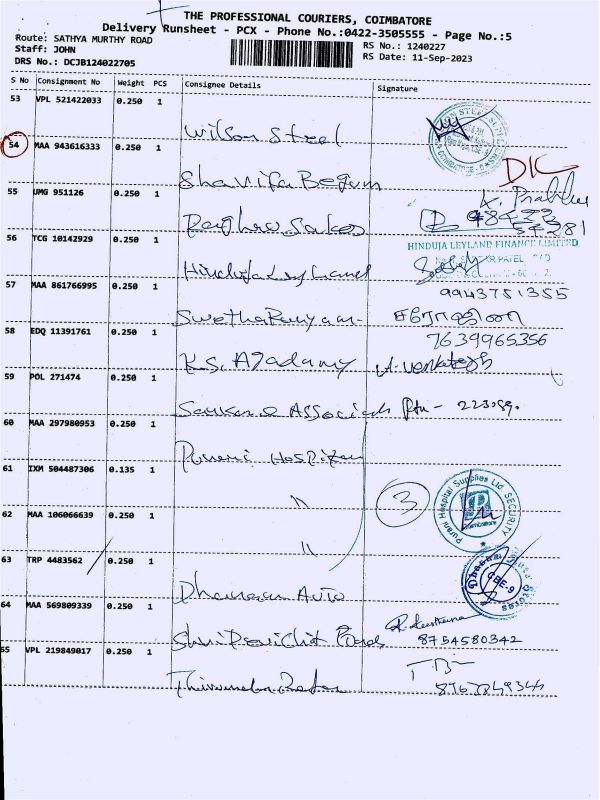 THE PROFESSIONAL COURIERS, COIMBATORE
Delivery Runsheet - PCX - Phone No.:0422-3505555 - Page No.:5
Route: SATHYA MURTHY ROAD
RS No.: 1240227
Staff: JOHN
RS Date: 11-Sep-2023
DRS No.: DCJB124022705
S No Consignment No Weight PCS Consignee Details Signature
53 VPL 521422033 0.250 1
Wilson Steel
54 MAA 943616333 0.250 1
Shanifa Begum
DK
55 UMG 951126 0.250 1
K. Prabhu
56 TCG 10142929 0.250 1
HINDUJA LEYLAND FINANCE LIMITED
Hinduja Leyland
57 MAA 861766995 0.250 1
9943751355
Swetha
சரோஜினி
58 EDQ 11391761 0.250 1
7639965356
K.S. Agadamy A. Venkatesh
59 POL 271474 0.250 1
Associats
60 MAA 297980953 0.250 1
Purani Hospital
61 IXM 504487306 0.135 1
"
3
Purani Hospital Supplies Ltd SECURITY
62 MAA 106066639 0.250 1
"
63 TRP 4483562 0.250 1
CBE-9
Auto
64 MAA 569809339 0.250 1
8754580342
65 VPL 219849017 0.250 1